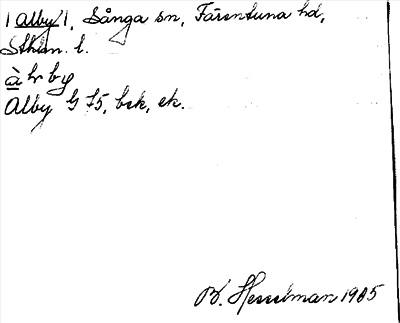 | Alby |, Sånga sn, Färentuna hd,
Sthlm. l.
by
Alby G 75, bsk, ek.
B. Hesselman 1905